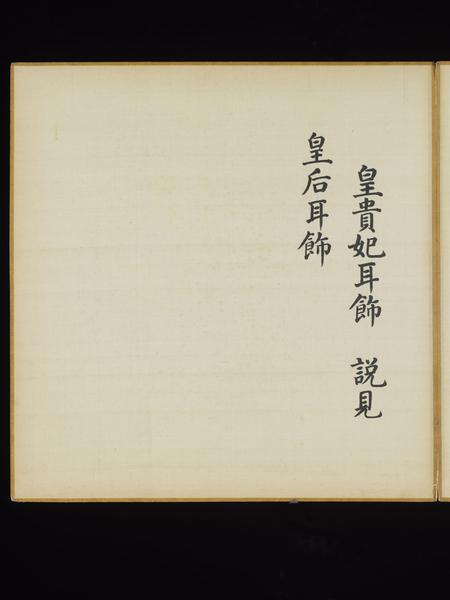 皇貴妃耳飾　説見
皇后耳飾